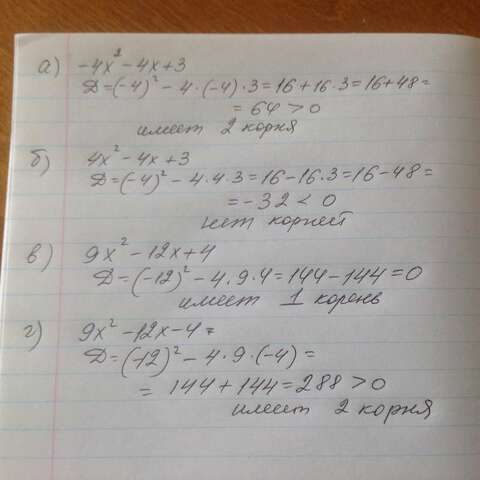 а) -4x² - 4x + 3
D = (-4)² - 4 · (-4) · 3 = 16 + 16 · 3 = 16 + 48 =
= 64 > 0
имеет 2 корня
б) 4x² - 4x + 3
D = (-4)² - 4 · 4 · 3 = 16 - 16 · 3 = 16 - 48 =
= -32 < 0
нет корней
в) 9x² - 12x + 4
D = (-12)² - 4 · 9 · 4 = 144 - 144 = 0
имеет 1 корень
г) 9x² - 12x - 4 =
D = (-12)² - 4 · 9 · (-4) =
= 144 + 144 = 288 > 0
имеет 2 корня